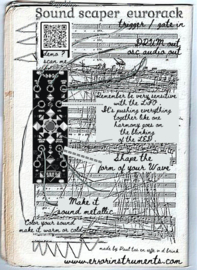 Sound scaper eurorack
trigger / gate in
DRUM out
osc audio out
scan me
Remember be very sensitive
with the LFO
It's pushing everything
together like one
harmony goes on
the blinking
of the LED
Shape the
form of your Wave
Make it
sound metallic
Color your sound
make it warm or cold
made by Paul
www.errorinstruments.com